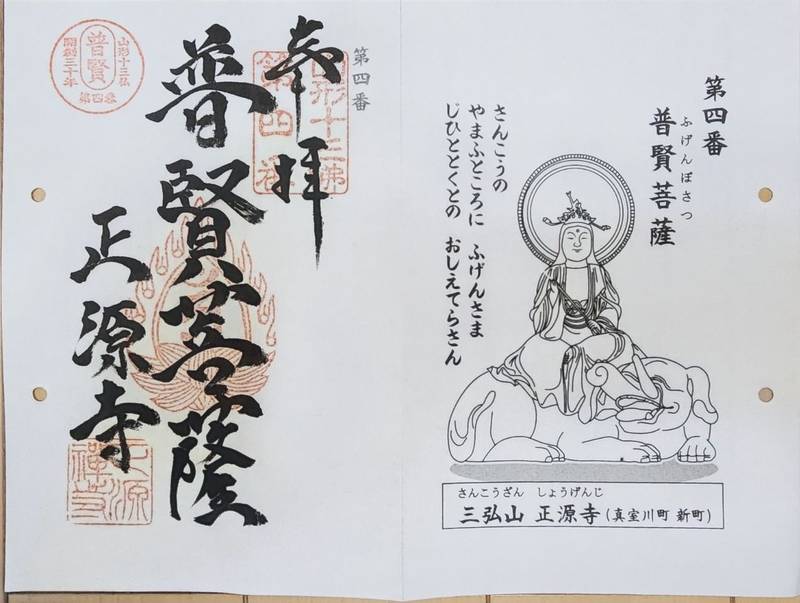 第四番
普賢菩薩
ふげんぼさつ
さんこうの
やまふところに ふげんさま
じひととくとの おしえてらさん
さんこうざん しょうげんじ
三弘山 正源寺(真室川町 新町)
第四番
奉拝
山形十三佛
第四番
普賢菩薩
正源寺
山形十三仏
普賢
第四番
開創三十年